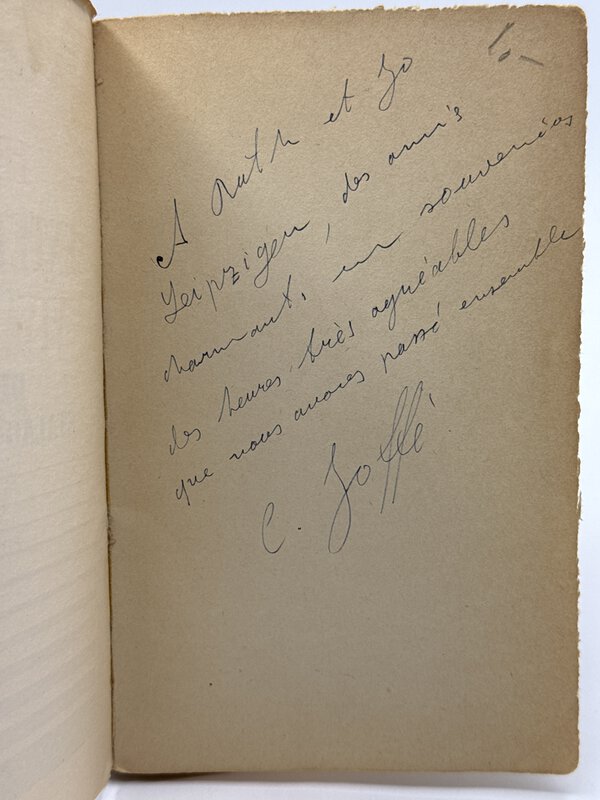 A Ruth et Jo
Leipziger, des amis
charmant, en souvenées
des heures très agréables
que nous avons passé ensemble
C. Joffé